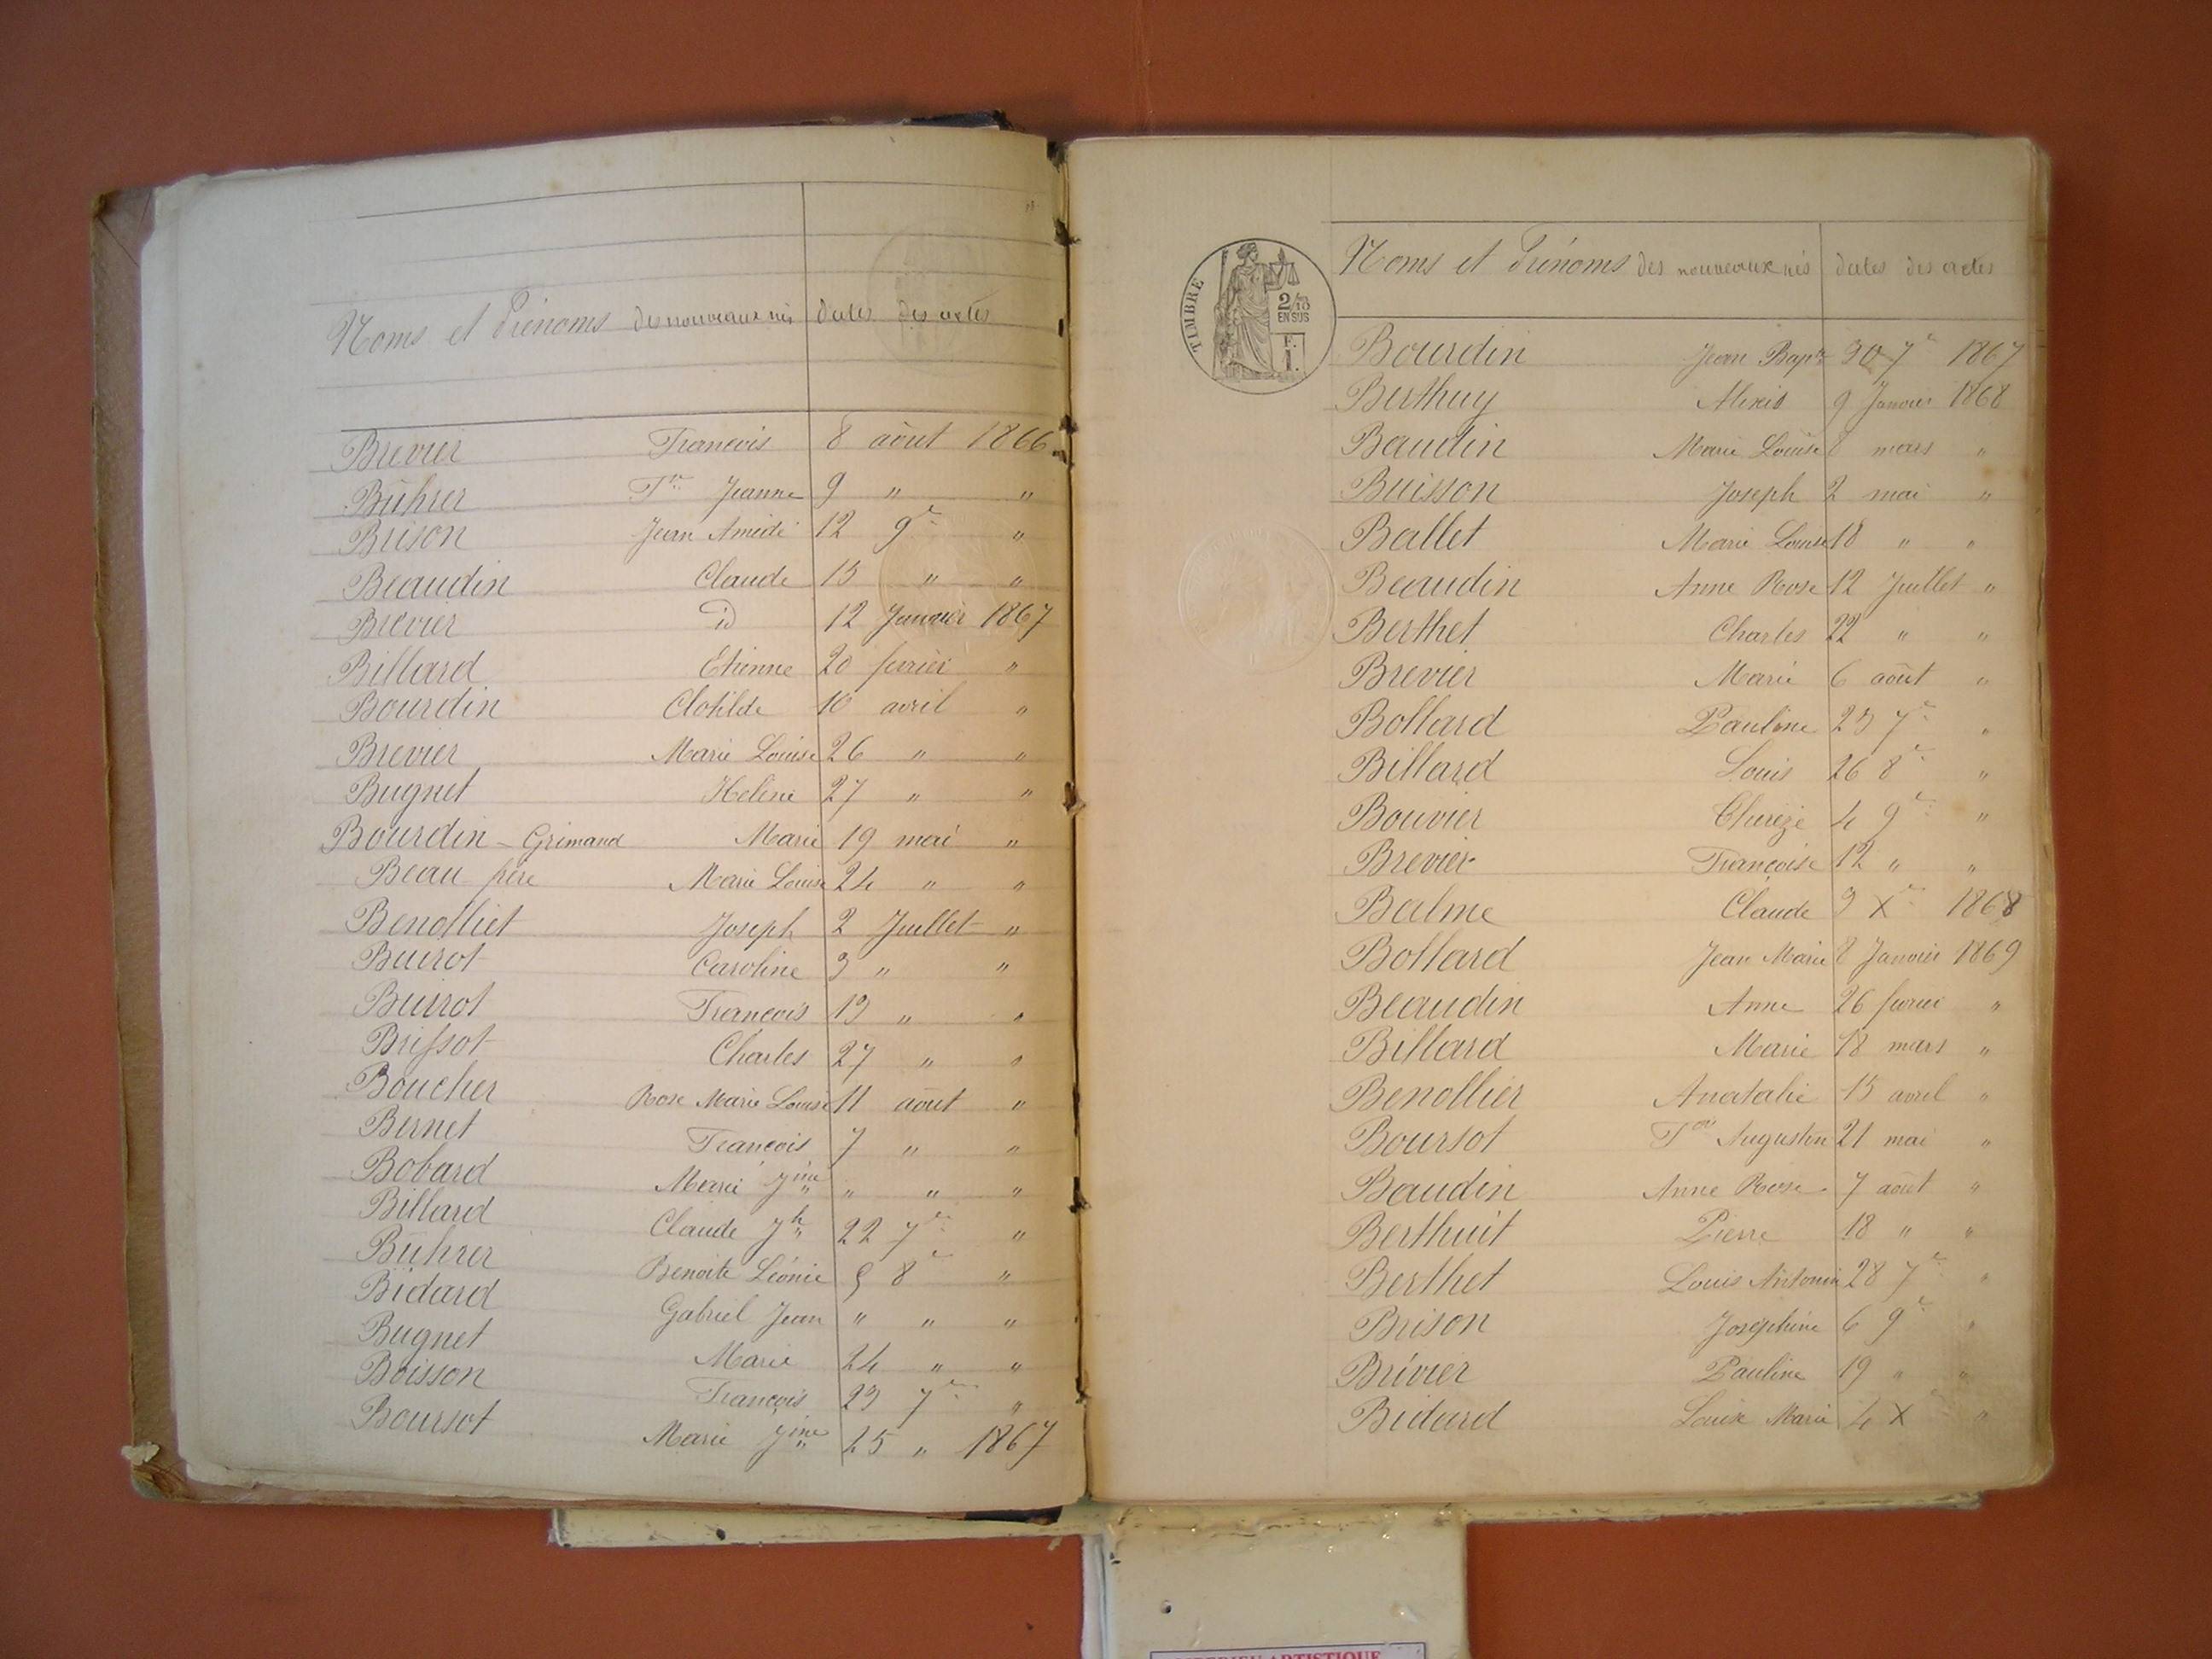 Noms et Prénoms des nouveaux nés dates des actes
Brevier François 8 août 1866
Bührer Fse Jeanne 9 " "
Brison Jean Amédé 12 9re "
Beaudin Claude 15 " "
Brevier id 12 Janvier 1867
Billard Etienne 20 fevrier "
Bourdin Clotilde 10 avril "
Brevier Marie Louise 26 " "
Bugnet Helène 27 " "
Bourdin - Grimand Marie 19 mai "
Beau père Marie Louise 24 " "
Benolliet Joseph 2 Juillet "
Buirot Caroline 3 " "
Buirot François 13 " "
Brissot Charles 27 " "
Boucher Rose Marie Louise 11 août "
Bernet François 7 " "
Bobard Marie Jine " " "
Billard Claude Jh 22 7re "
Bührer Benoite Léonie 5 8re "
Bidard Gabriel Jean " " "
Bugnet Marie 24 " "
Boisson François 23 7re "
Boursot Marie Jine 25 " 1867
TIMBRE
2/10 EN SUS
F. 1.
Noms et Prénoms des nouveaux nés dates des actes
Bourdin Jean Bapte 30 7re 1867
Berthuy Alexis 9 Janvier 1868
Baudin Marie Louise 8 mars "
Buisson Joseph 2 mai "
Ballet Marie Louise 18 " "
Beaudin Anne Rose 12 Juillet "
Berthet Charles 22 " "
Brevier Marie 6 août "
Bollard Pauline 23 7re "
Billard Louis 26 8re "
Bouvier Thérèze 4 9re "
Brevier Françoise 12 " "
Balme Claude 3 Xre 1868
Bollard Jean Marie 8 Janvier 1869
Beaudin Anne 26 fevrier "
Billard Marie 18 mars "
Benollier Anatalie 15 avril "
Boursot Fois Augustin 21 mai "
Baudin Anne Rose 7 août "
Berthuit Pierre 18 " "
Berthet Louis Antonin 28 7re "
Brison Joséphine 6 9re "
Brévier Pauline 19 " "
Bidard Louise Marie 4 Xre "